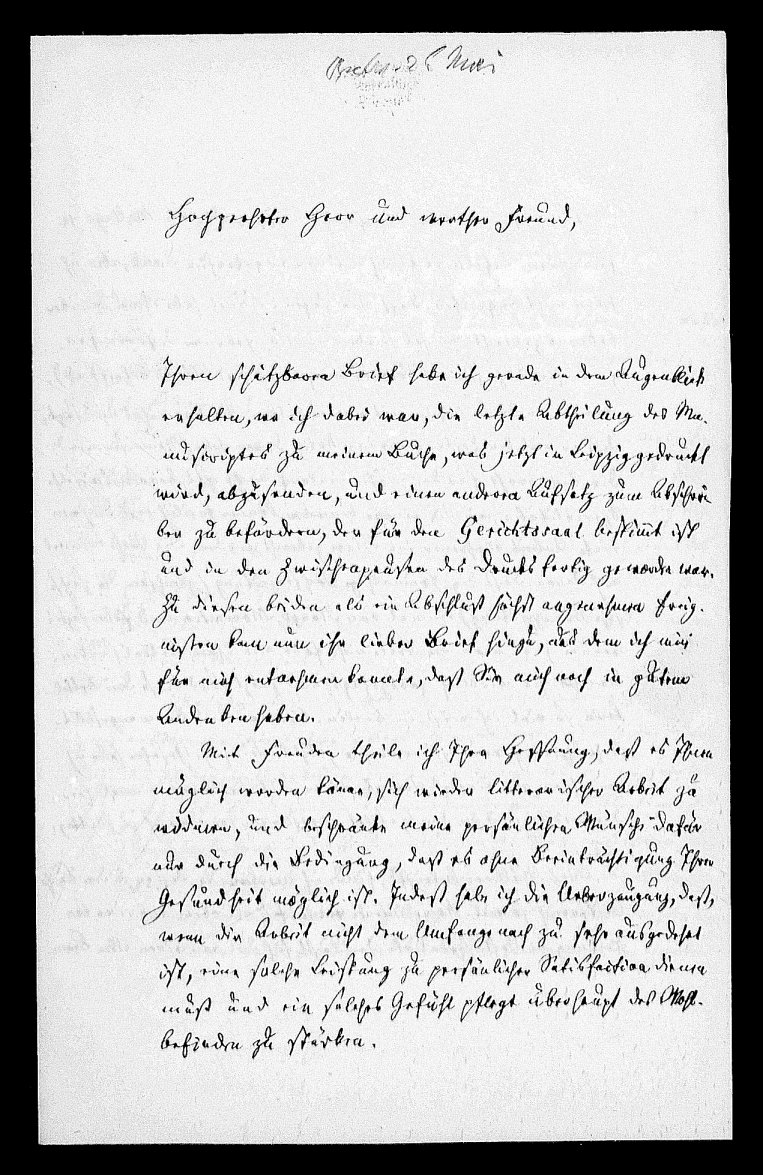 Mai
Hochverehrter Herr und werther Freund,
Ihren schätzbaren Brief habe ich gerade in dem Augenblick
erhalten, wo ich dabei war, die letzte Abtheilung des Ma-
nuscriptes zu meinem Buche, was jetzt in Leipzig gedruckt
wird, abzusenden, und einen anderen Aufsatz zum Abschrei-
ben zu befördern, der für den Gerichtssaal bestimmt ist
und in den Zwischenpausen des Drucks fertig geworden war.
Zu diesen beiden als ein Abschluß höchst angenehmen Ereig-
nissen kam nun ihr lieber Brief hinzu, aus dem ich
für mich entnehmen konnte, daß Sie mich noch in gutem
Andenken haben.
Mit Freuden theile ich Ihre Hoffnung, daß es Ihnen
möglich werden könne, sich wieder litterarischer Arbeit zu
widmen, und beschränke meine persönlichen Wünsche dafür
nur durch die Bedingung, daß es ohne Beeinträchtigung Ihrer
Gesundheit möglich ist. Indeß habe ich die Ueberzeugung, daß,
wenn die Arbeit nicht dem Umfange nach zu sehr ausgedehnt
ist, eine solche Leistung zu persönlicher Satisfaction dienen
muß und ein solches Gefühl pflegt überhaupt das Wohl-
befinden zu stärken.